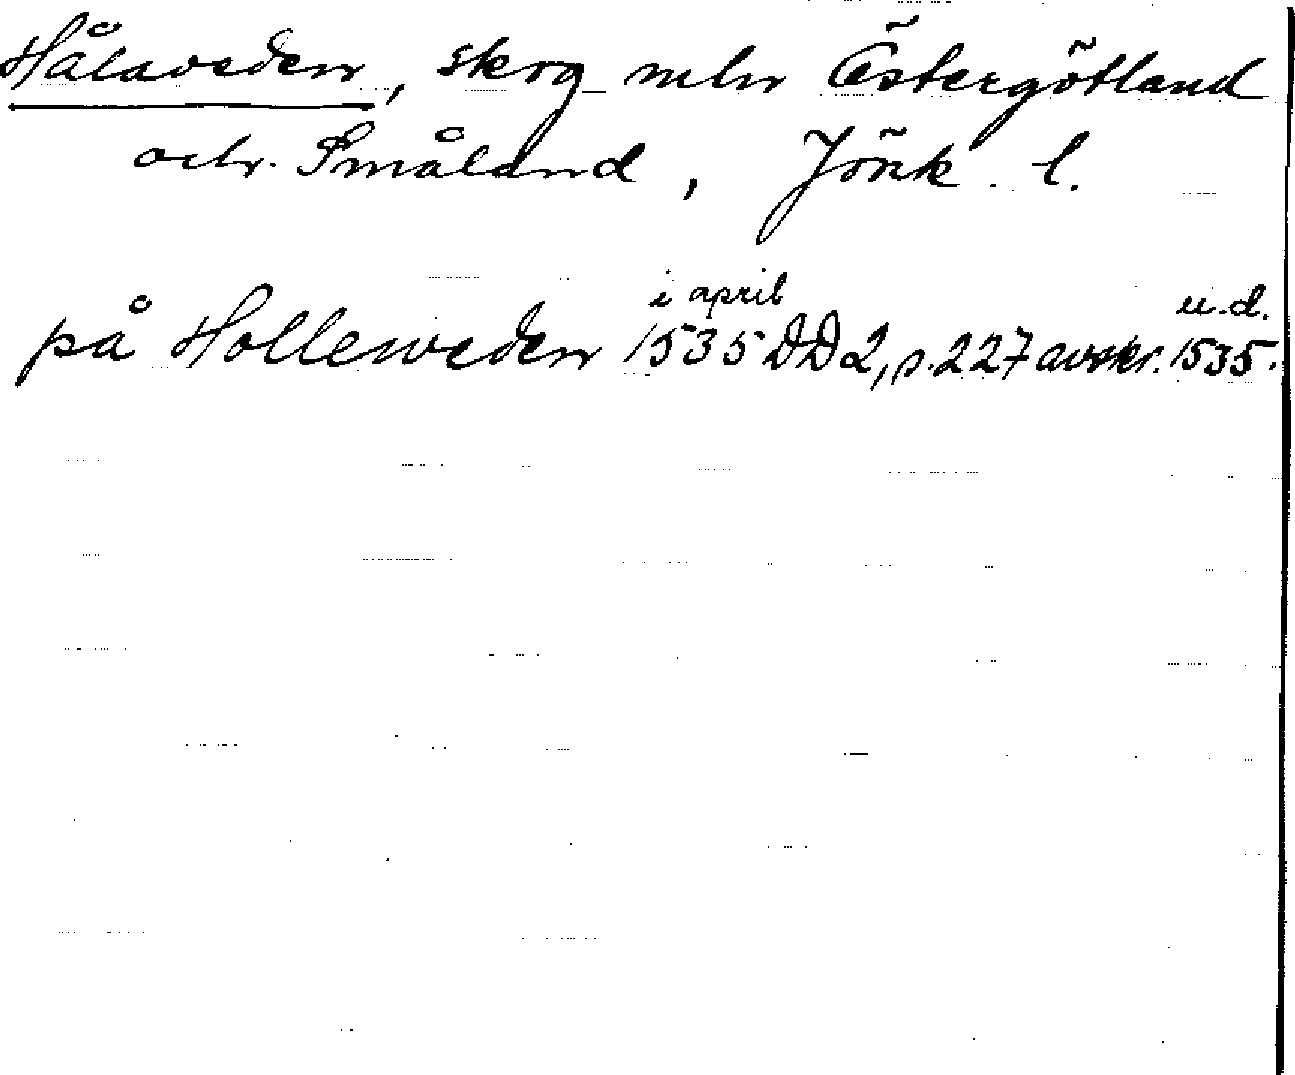 Hålaveden, skog mln Östergötland
och Småland, Jönk. l.
i april u.d.
på Holleweden 1535 DD2, s. 227 avskr. 1535.